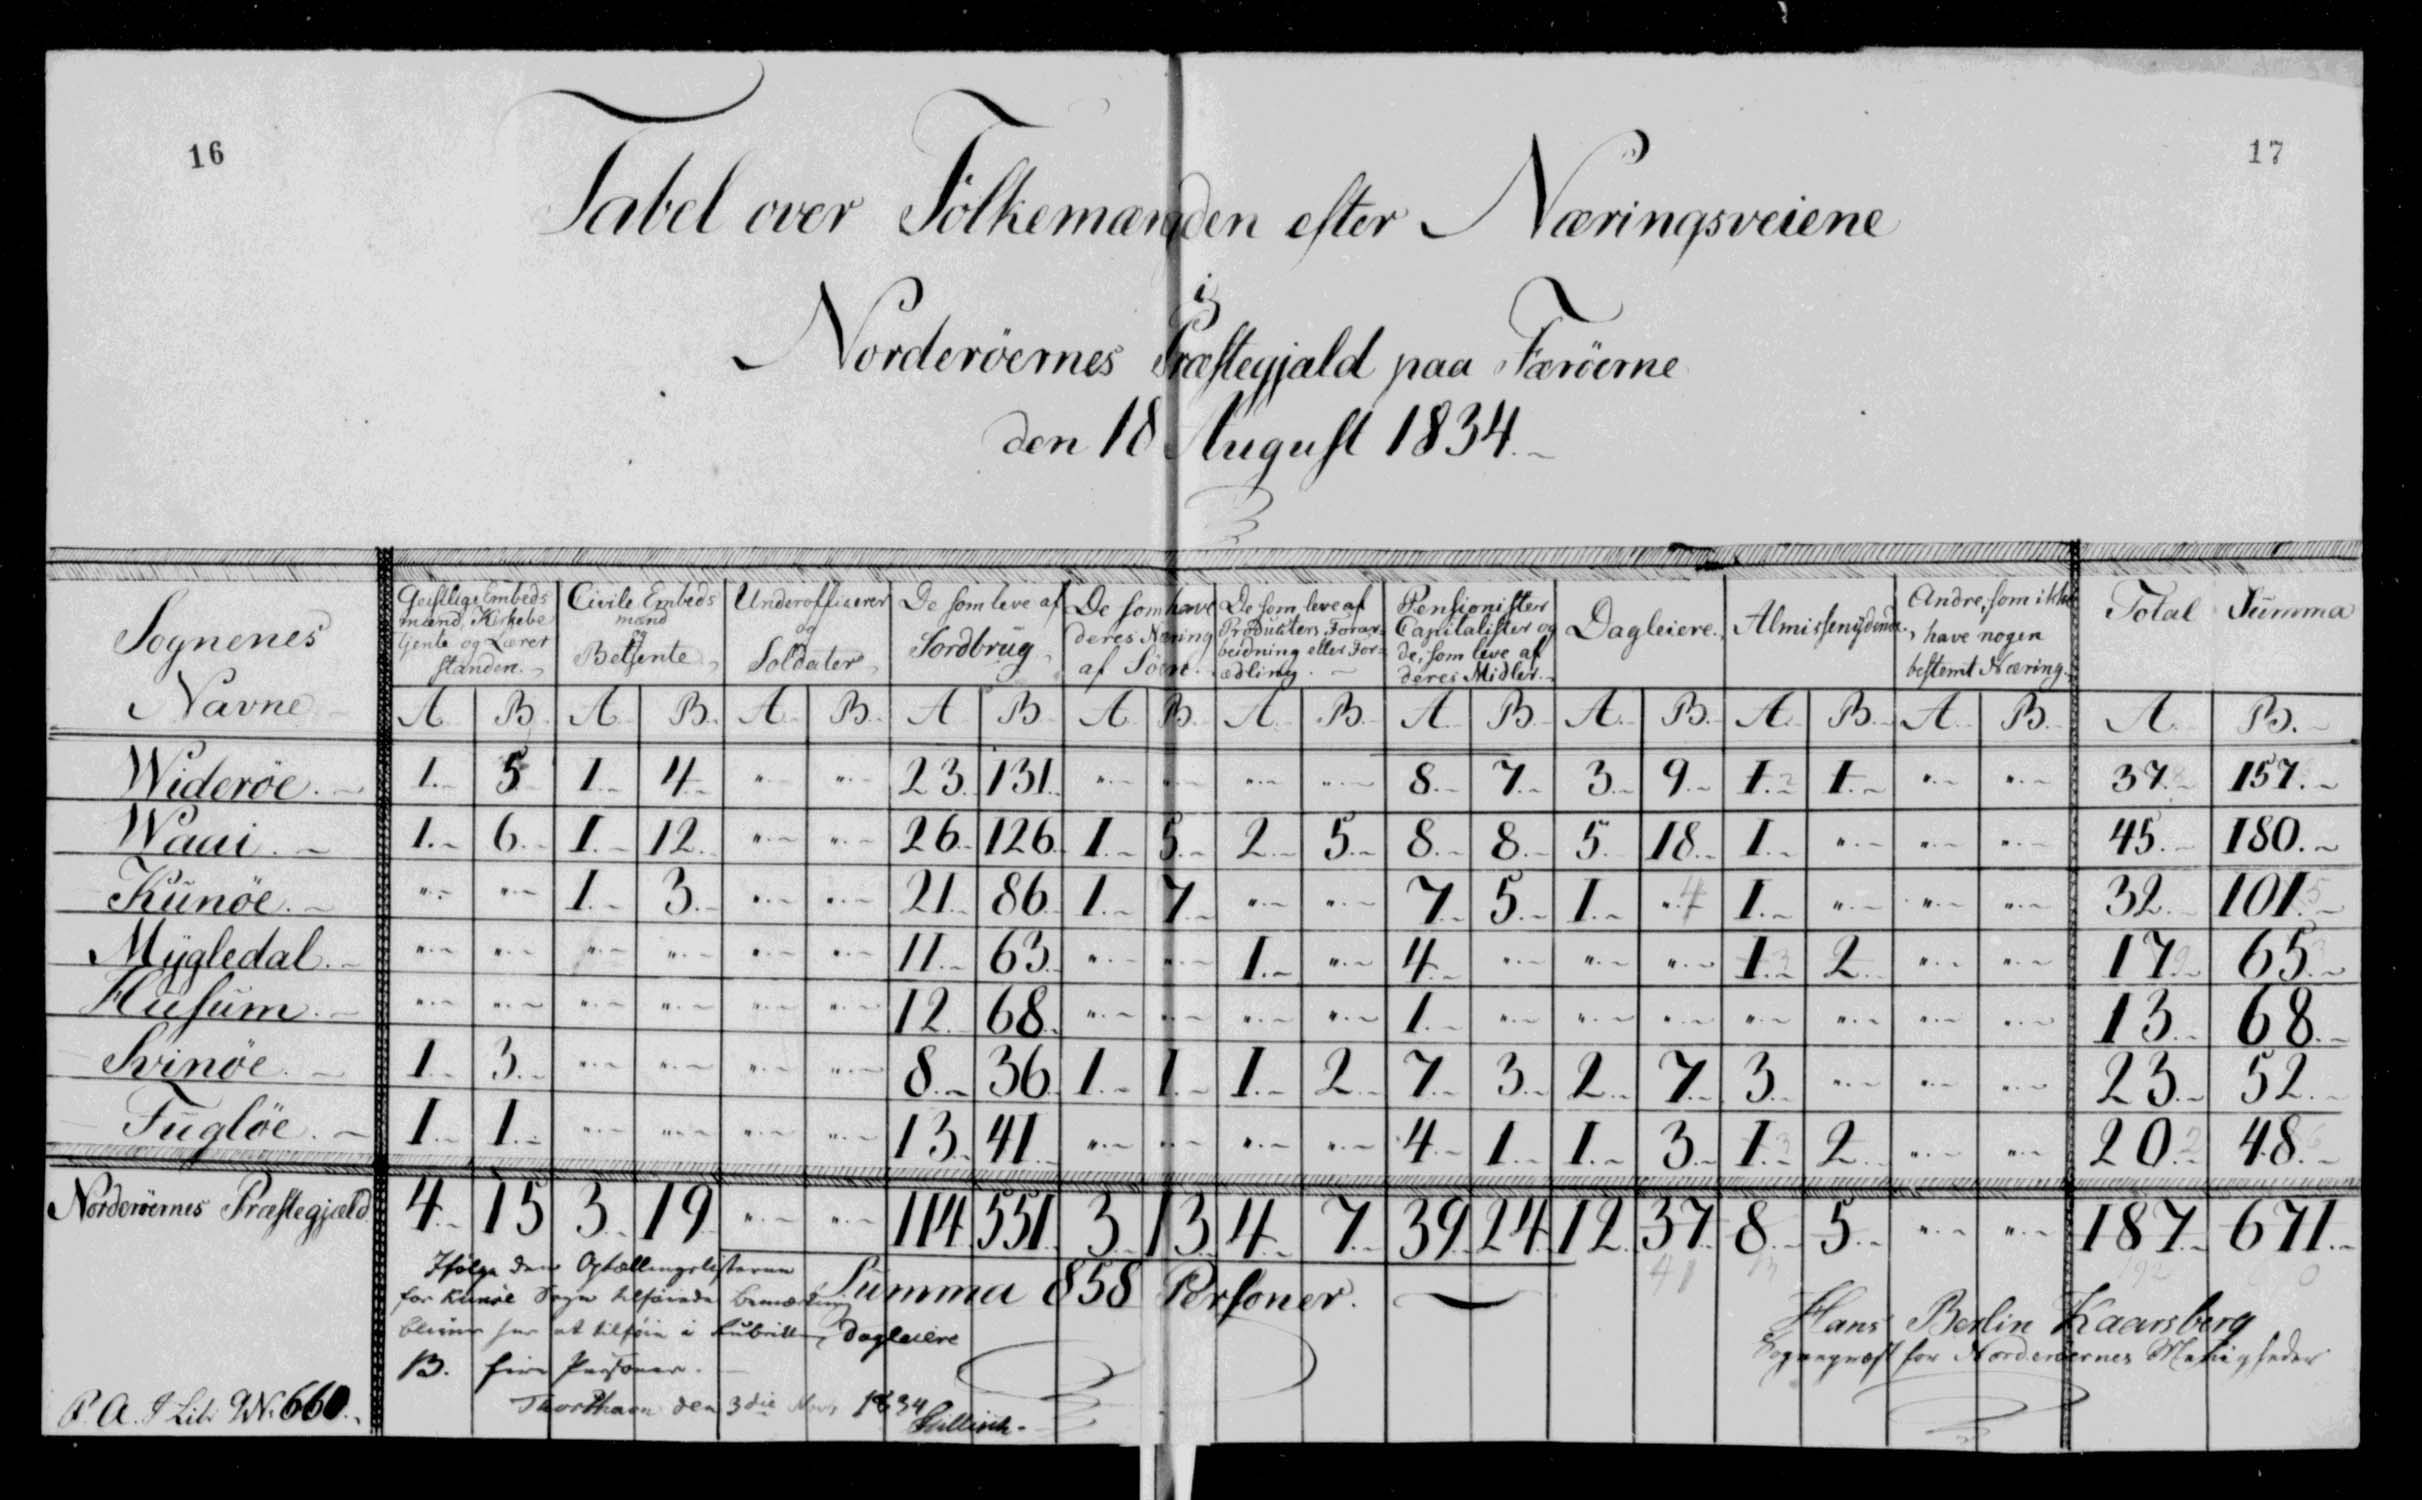 16
17
Tabel over Folkemængden efter Næringsveiene
i
Norderöernes Præstegjald paa Færöerne
den 18 August 1834.
Sognenes Navne
Geistlige Embeds mænd, Kirkebe tjente og Lærer standen.
Civile Embeds mænd og Betjente
Underofficerer og Soldater
De som leve af Jordbrug
De som have deres Næring af Söen.
De som leve af Produkters Forar= beidning eller For= ædling.
Pensionister Capitalister og de, som leve af deres Midler.
Dagleiere.
Almissenydende.
Andre, som ikke have nogen bestemt Næring.
Total Summa
A B. A B. A B. A B A B. A B. A B. A. B. A. B. A. B. A. B.
Wideröe. 1. 5 1. 4 " " 23. 131. " " " " 8. 7. 3. 9. 1. 1. " " 37. 157.
Waai. 1. 6. 1. 12. " " 26. 126. 1. 5. 2. 5. 8. 8. 5. 18. 1. " " " 45. 180.
Kunöe. " " 1. 3. " " 21. 86. 1. 7. " " 7. 5. 1. " 4 1. " " " 32. 101. 5
Mygledal. " " " " " " 11. 63. " " 1. " 4. " " " 1. 3 2. " " 17. 65.
Husum. " " " " " " 12. 68. " " " " 1. " " " " " " " 13. 68.
Svinöe. 1. 3. " " " " 8. 36. 1. 1. 1. 2. 7. 3. 2. 7. 3. " " " 23. 52.
Fuglöe. 1. 1. " " " " 13. 41. " " " " 4. 1. 1. 3. 1. 3 2. " " 20. 2 48.
Norderöernes Præstegjæld 4. 15 3. 19. " " 114. 551. 3. 13. 4. 7. 39. 24. 12. 37. 8. 5. " " 187. 671.
41 13 192
Summa 858 Personer.
Ifølge den Optællingslisterne
for Kunöe Sogn tilföiede Bemærkning
bliver her at tilföie i Rubrikken Dagleiere
B. fire Personer.
Thorshavn den 3die Nov. 1834
Tillisch.
Hans Berlin Kaarsberg
Sognepræst for Norderöernes Menigheder
P. A. I Lit. W N. 660.